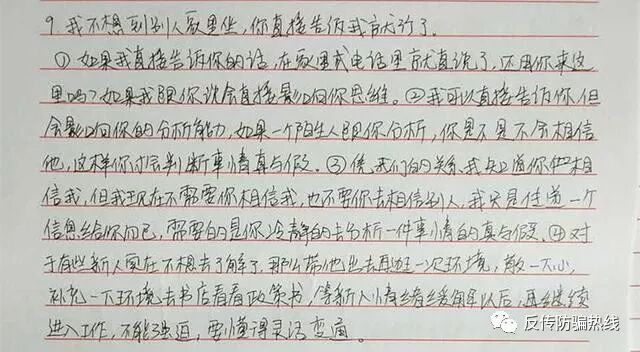 9. 我不想到别人家里坐,你直接告诉我就行了。
①如果我直接告诉你的话,在家里或电话里就直说了,还用你来这
里吗?如果我跟你说会直接影响你思维。②我可以直接告诉你,但
会影响你的分析能力,如果一个陌生人跟你分析,你是不是不会相信
他,这样你才会判断事情真与假。③凭我们的关系我知道你也相
信我,但我现在不需要你相信我,也不要你去相信别人,我只是传递一个
信息给你而已,需要的是你冷静的去分析一件事情的真与假。④对
于有些新人实在不想去了解了,那么带他出去再逛一次环境,散一下心,
补充一下环境去书店看看政策书,等新人情绪缓解以后,再继续
进入工作,不能强迫,要懂得灵活变通。
反传防骗热线